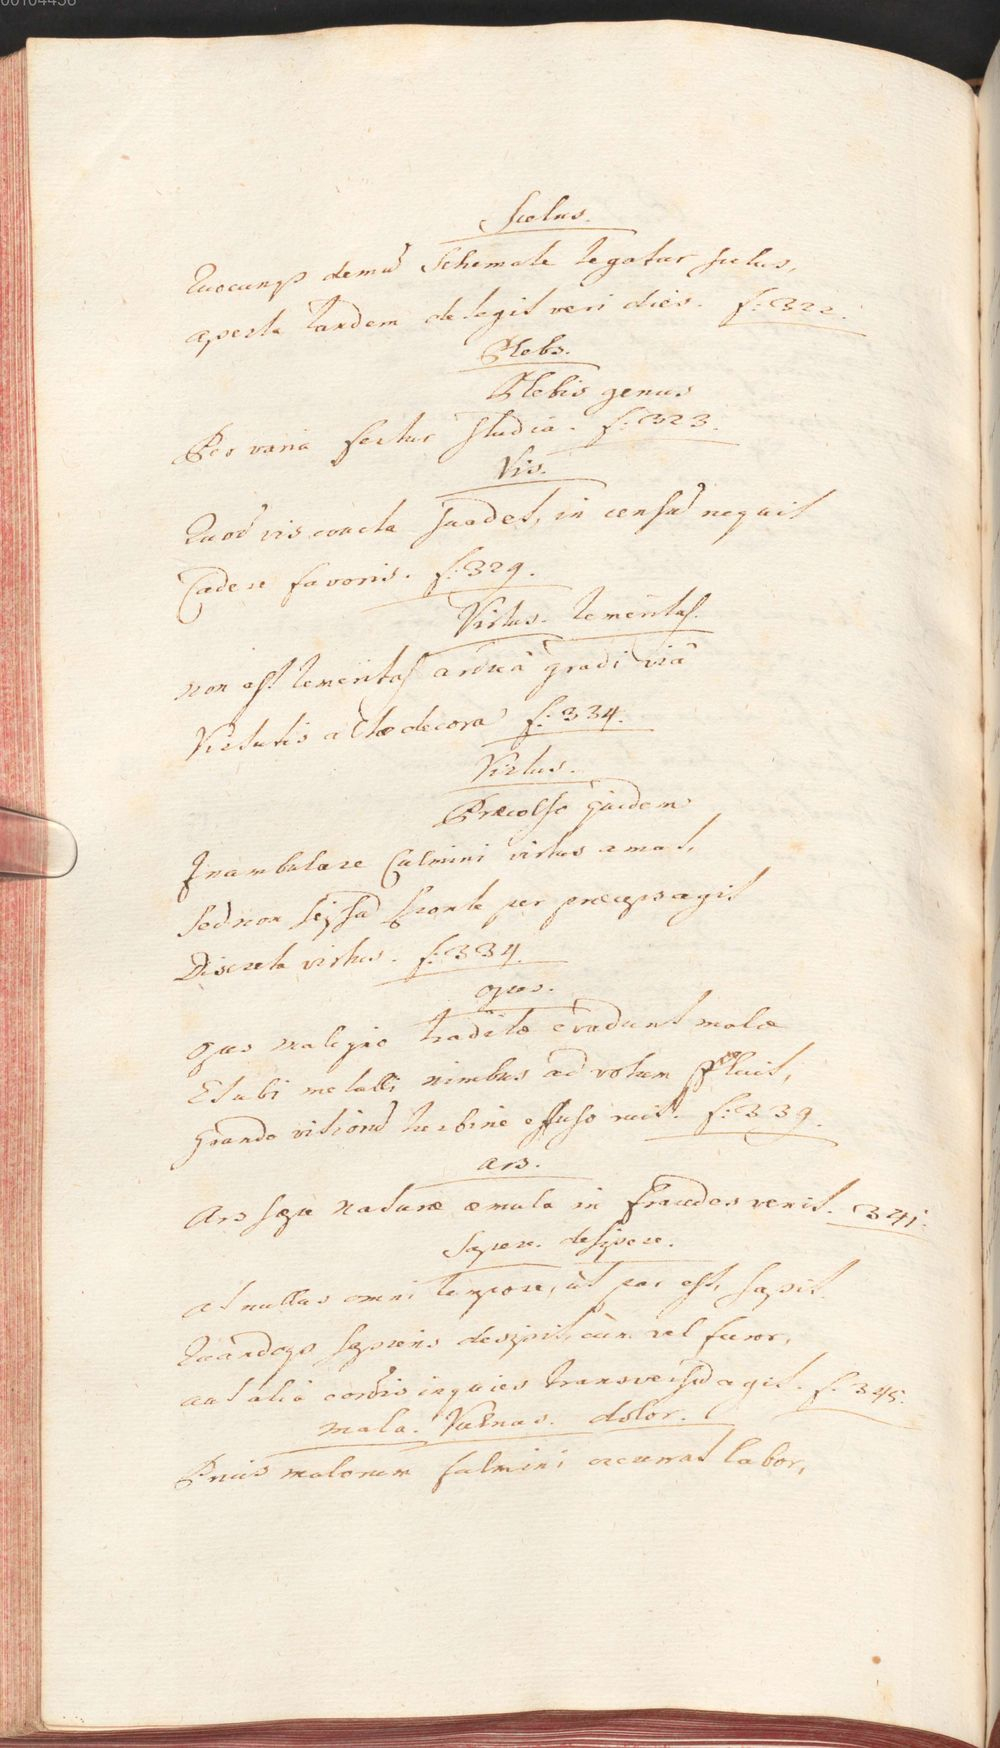 00104436
Scelus.
Quocunqꝫ demū Schemate tegatur scelus,
aperta tandem detegit veri dies. f: 322.
Plebs.
Plebis genus
Per varia fertur studia. f: 323.
Vis.
Quod vis coacta suadet, in censū nequit
Cadere favoris. f: 329.
Virtus. temeritas.
non est temeritas arduâ gradi viâ
Virtutis altæ decora f: 334.
Virtus.
Præcelso quidem
Inambulare Culmini virtus amat,
Sed non seipsā sponte per præceps agit
Discreta virtus. f: 334.
opes.
opes maligne traditæ evadunt malæ
Et ubi metalli nimbus ad votum pluit,
grando vitiorū turbine effuso ruit. f: 339.
ars.
Ars sæpe naturæ æmula in fraudes venit. 341.
Sapere. desipere.
at nullus omni tempore, ut par est, sapit.
Quandoqꝫ sapiens desipit, cùm vel furor,
aut alia cordis inquies transversū agit. f. 345.
Mala. Vulnus. dolor.
Prius malorum fulmini occurrat labor,